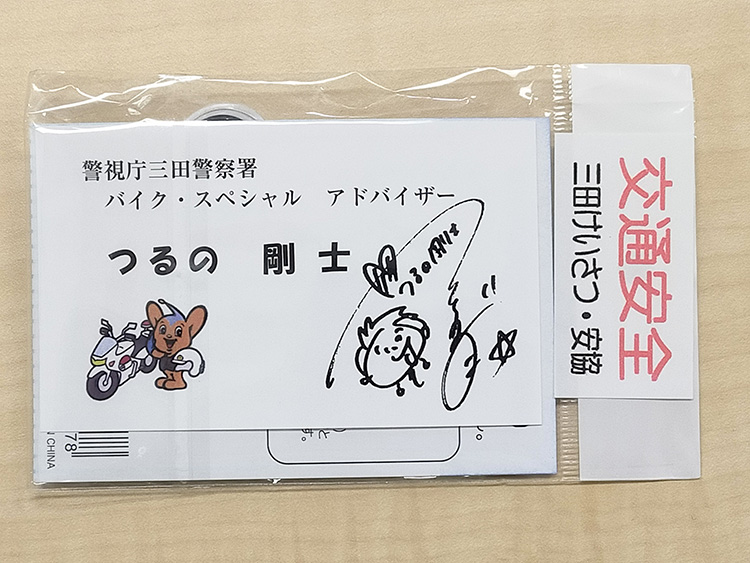 警視庁三田警察署
バイク・スペシャル アドバイザー
つるの 剛士
つるの剛士
交通安全
三田けいさつ・安協
78
N CHINA
と
す。